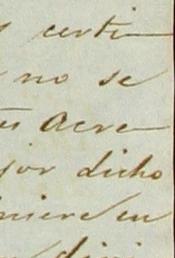 certi-
no se
acre-
jor dicho
niere en